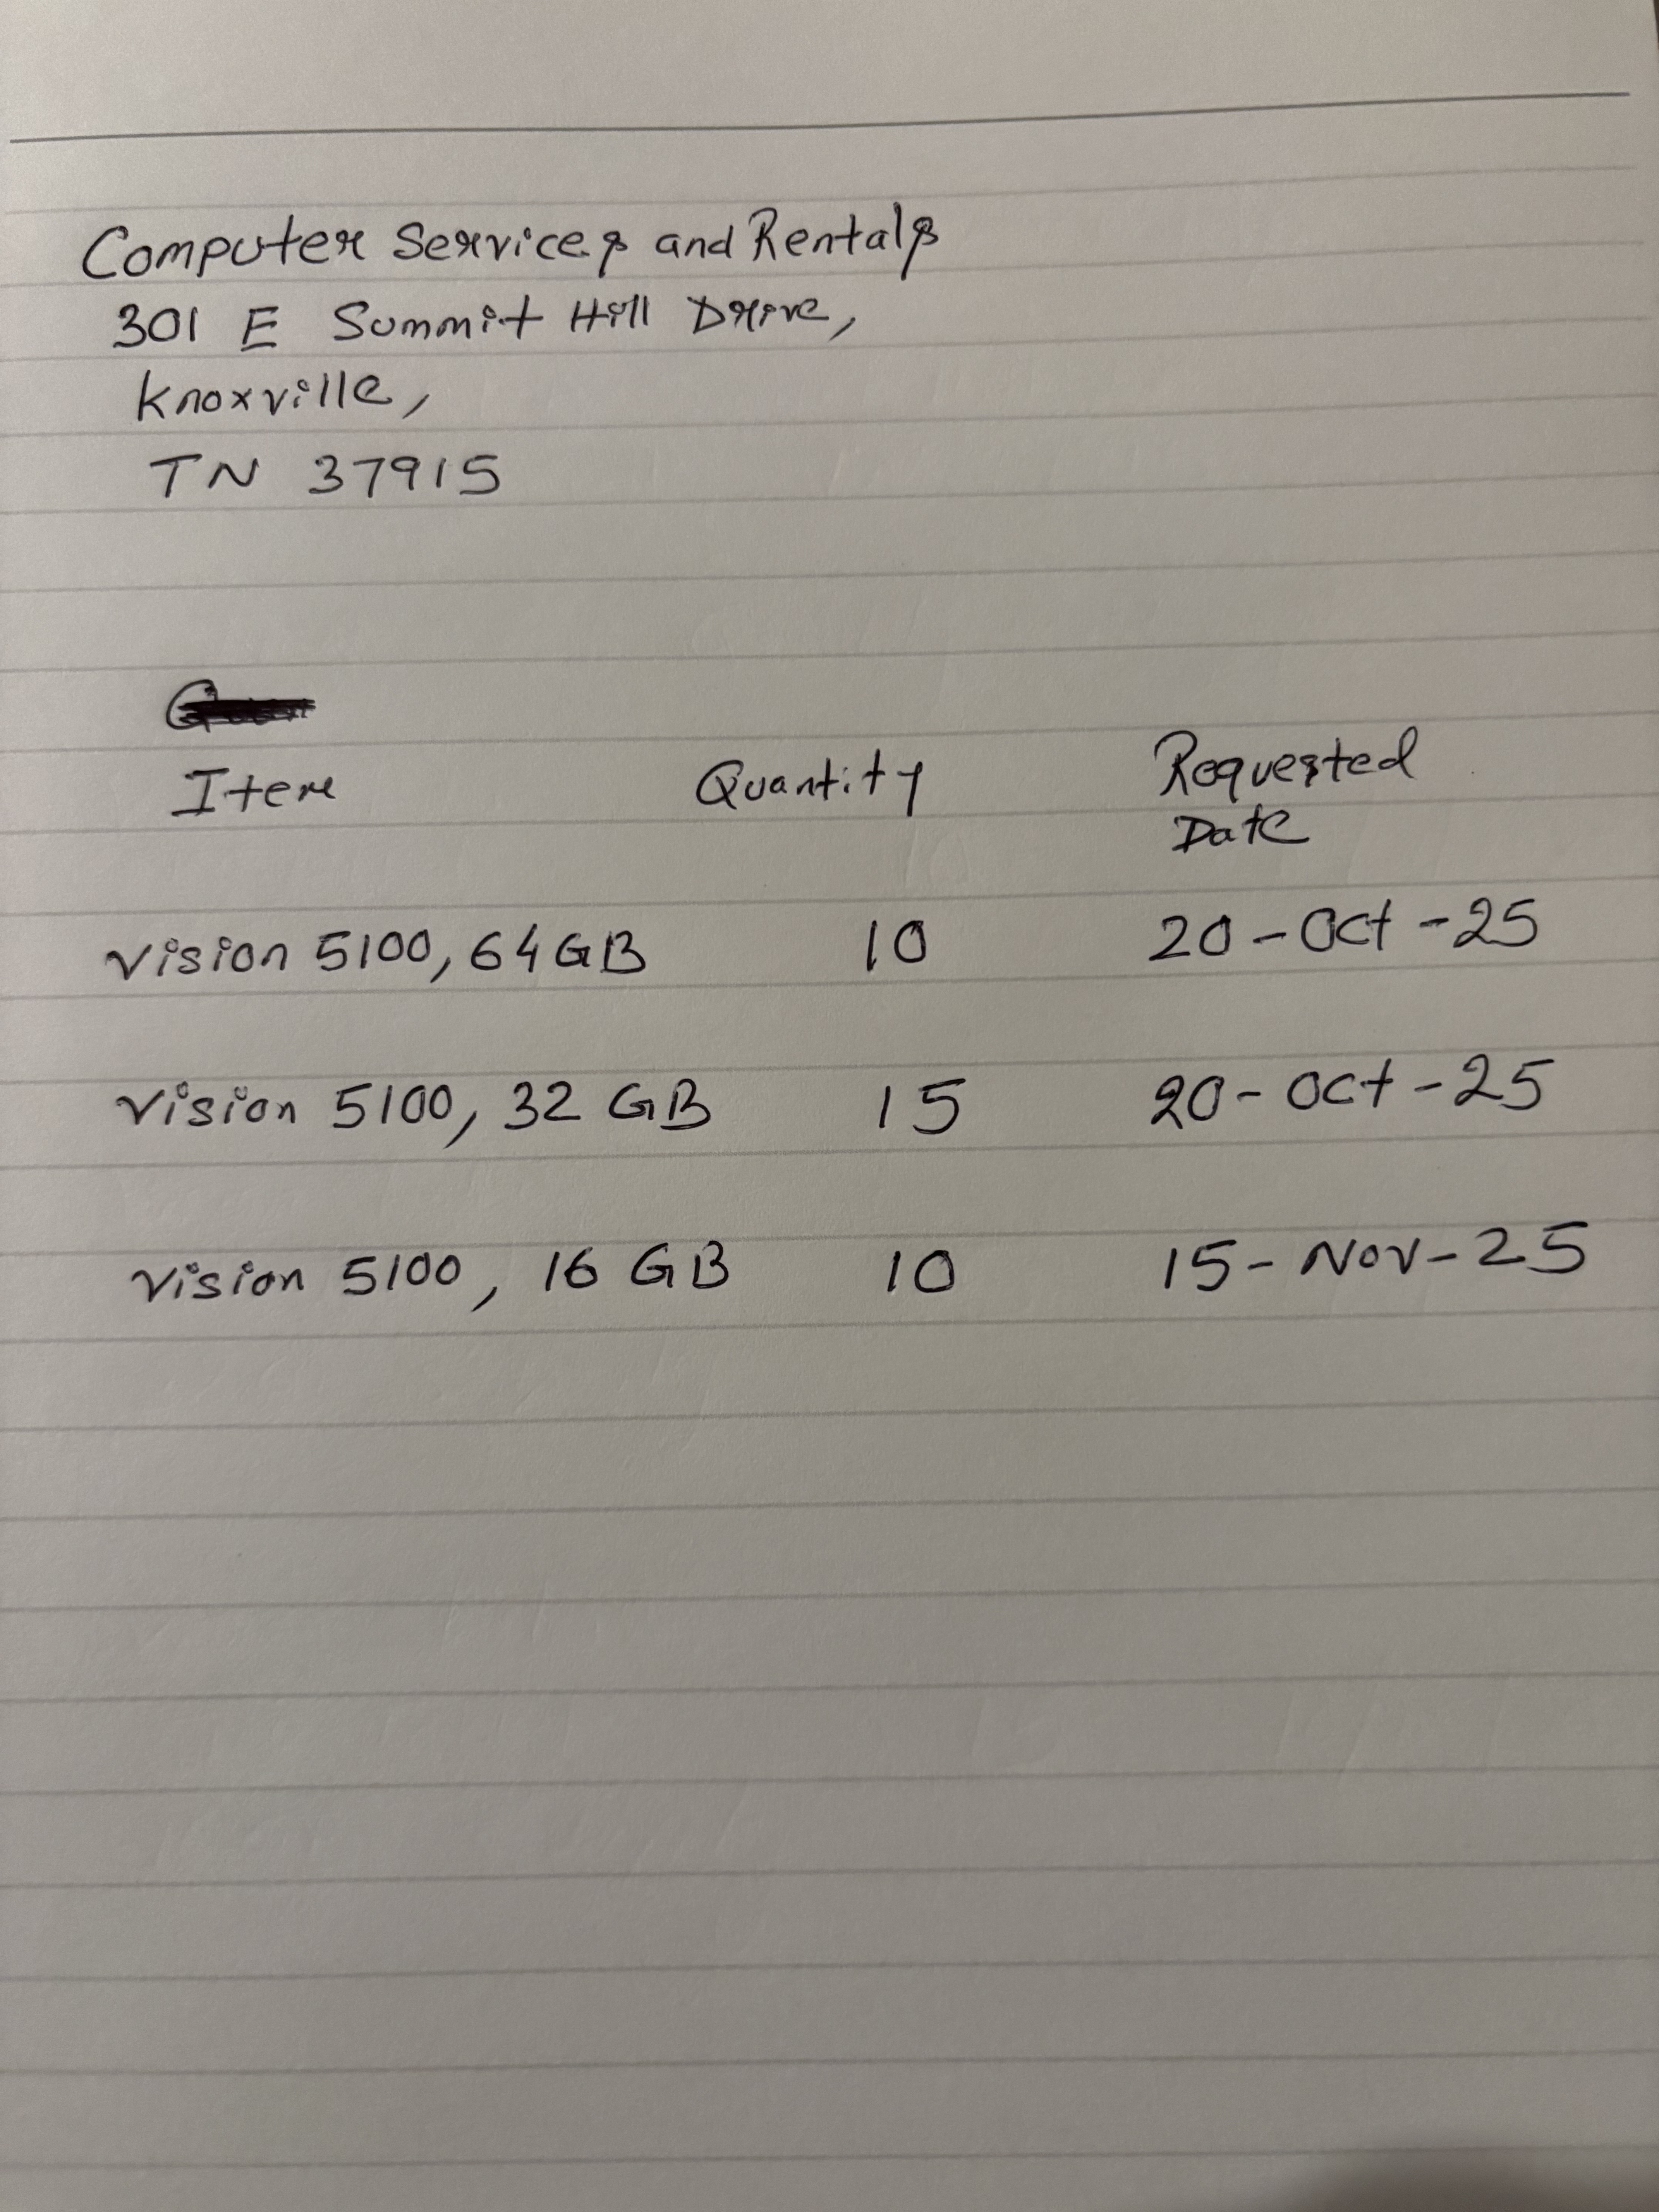 Computer Services and Rentals
301 E Summit Hill Drive,
Knoxville,
TN 37915
Item Quantity Requested
Date
Vision 5100, 64GB 10 20-Oct-25
Vision 5100, 32 GB 15 20-Oct-25
Vision 5100, 16 GB 10 15-Nov-25